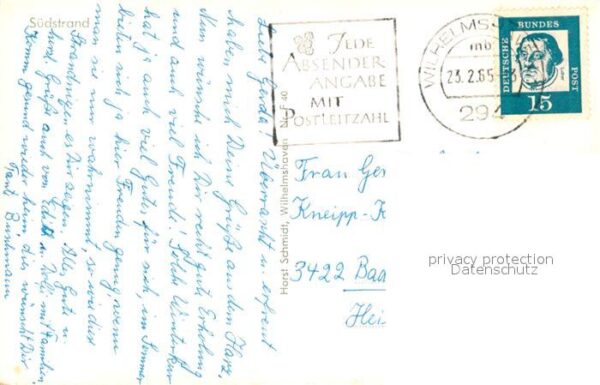 Südstrand
Liebe Gerda! Überrascht u. erfreut
haben mich Deine Grüße aus dem Harz,
Nun wünsche ich Dir recht gute Erholung
und auch viel Freude! Solche Winterkur
hat ja auch viel Gutes für sich, im Sommer
bieten sich ja hier Freuden genug, wenn
man sie nur wahrnimmt, so wie dies
Strandleben es Dir zeigen. Alles Gute u.
herzl. Grüße auch von Edith u. Rolf mit Familien
Komm gesund wieder heim, dies wünscht Dir
Tante
Horst Schmidt, Wilhelmshaven Nr. F 40
JEDE
ABSENDER
ANGABE
MIT
POSTLEITZAHL
WILHELMS
mb
23.2.65
294
DEUTSCHE BUNDESPOST
15
Frau Ger
Kneipp-K
3422 Baa
Hei
privacy protection
Datenschutz